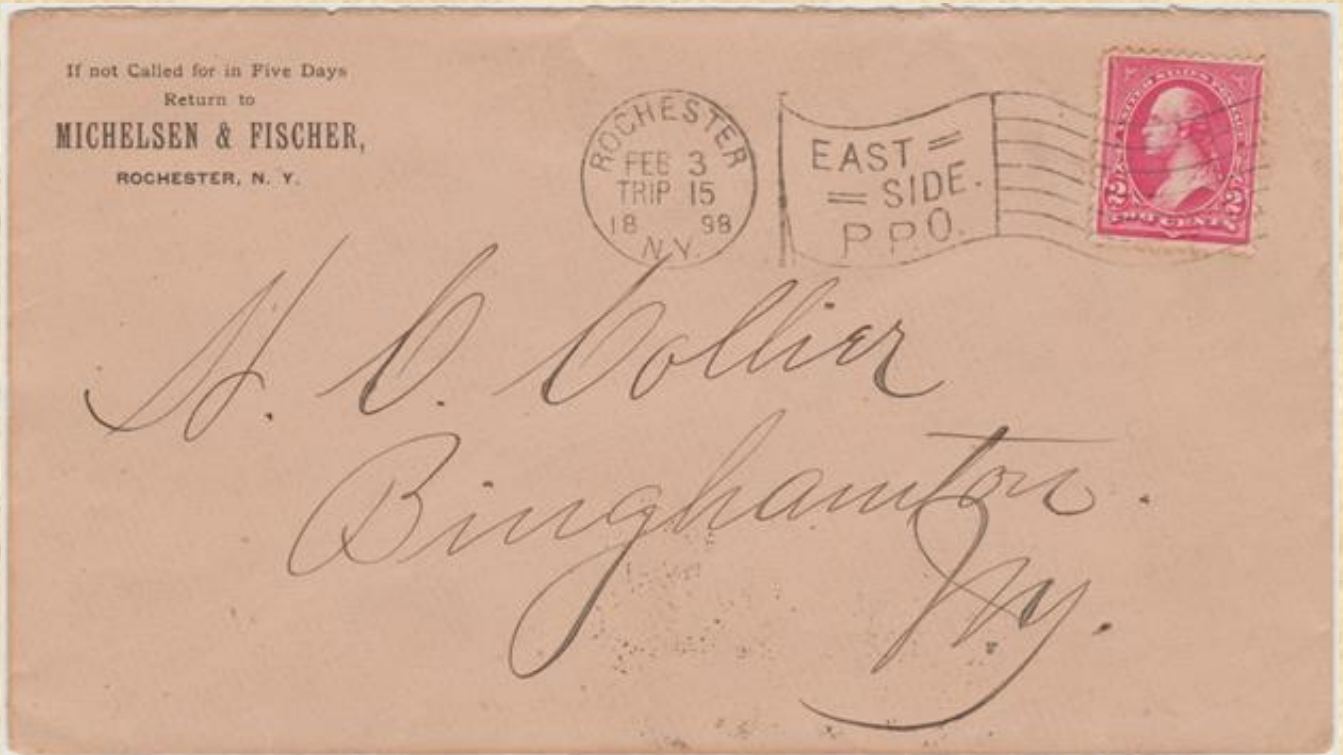 If not Called for in Five Days
Return to
MICHELSEN & FISCHER,
ROCHESTER, N. Y.
ROCHESTER
FEB 3
TRIP 15
18 98
N.Y.
EAST =
= SIDE.
P.P.O.
UNITED STATES POSTAGE
2 2
TWO CENTS
H. C. Collier
Binghamton.
NY.